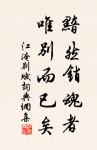 黯然銷魂者
唯別而已矣
江淹別賦詞典網集